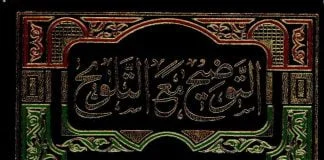 التوضيح مع التلويح